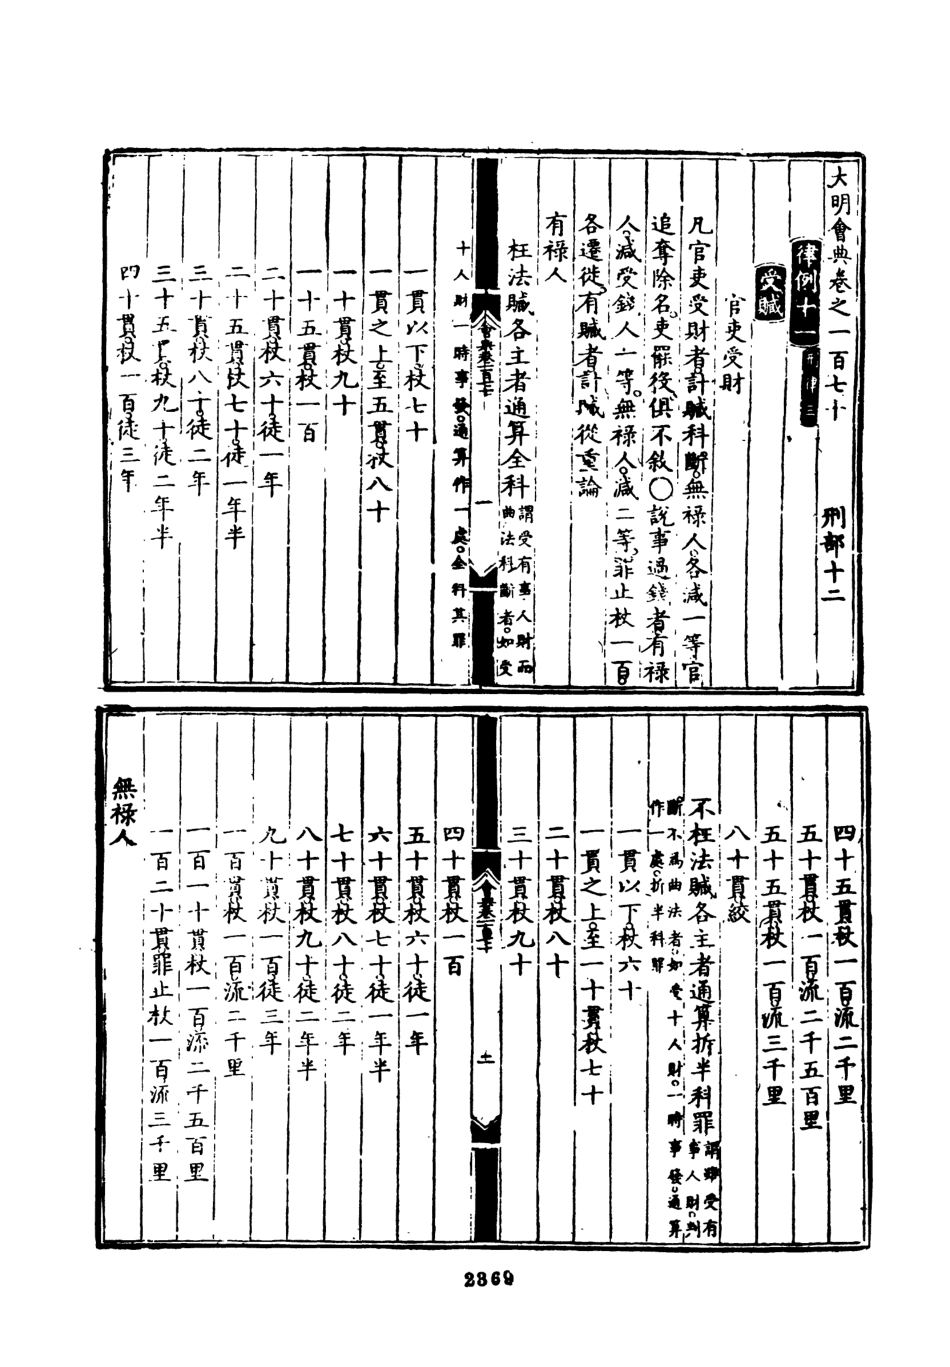 大明會典卷之一百七十 刑部十二
律例十一 刑律三
受贓
官吏受財
凡官吏受財者計贓科斷無祿人各減一等官
追奪除名吏罷役俱不敘○說事過錢者有祿
人減受錢人一等無祿人減二等罪止杖一百
各遷徙有贓者計贓從重論
有祿人
枉法贓各主者通算全科謂受有事人財而曲法科斷者如受
十人財一時事發通算作一處全科其罪
一貫以下杖七十
一貫之上至五貫杖八十
一十貫杖九十
一十五貫杖一百
二十貫杖六十徒一年
二十五貫杖七十徒一年半
三十貫杖八十徒二年
三十五貫杖九十徒二年半
四十貫杖一百徒三年
四十五貫杖一百流二千里
五十貫杖一百流二千五百里
五十五貫杖一百流三千里
八十貫絞
不枉法贓各主者通算折半科罪謂雖受有事人財判
斷不為曲法者如受十人財一時事發通算
作一處折半科罪
一貫以下杖六十
一貫之上至一十貫杖七十
二十貫杖八十
三十貫杖九十
四十貫杖一百
五十貫杖六十徒一年
六十貫杖七十徒一年半
七十貫杖八十徒二年
八十貫杖九十徒二年半
九十貫杖一百徒三年
一百貫杖一百流二千里
一百一十貫杖一百流二千五百里
一百二十貫罪止杖一百流三千里
無祿人
2369